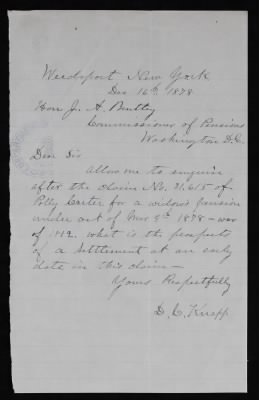 Weedsport, New York
Dec 16th 1878
Hon J. A. Bentley
Commissioner of Pensions
Washington D.C.
Dear Sir
Allow me to enquire
after the claim No. 31,615 of
Polly Carter for a widow's pension
under act of Mar 9th 1878 - war
of 1812. what is the prospect
of a settlement at an early
date in this claim -
Yours Respectfully
D. C. Knapp